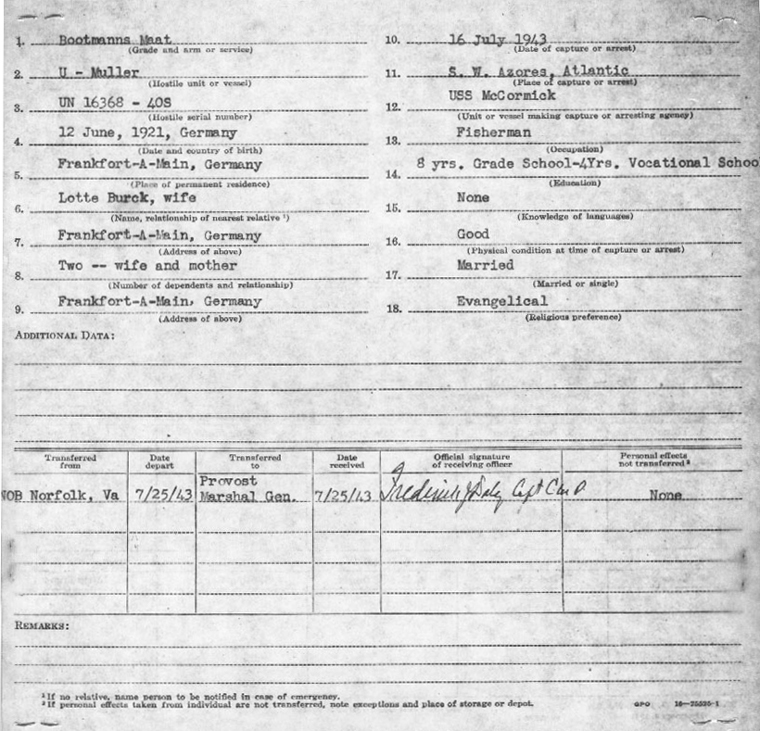 1. Bootmanns Maat
(Grade and arm or service)
2. U - Muller
(Hostile unit or vessel)
3. UN 16368 - 40S
(Hostile serial number)
4. 12 June, 1921, Germany
(Date and country of birth)
5. Frankfort-A-Main, Germany
(Place of permanent residence)
6. Lotte Burck, wife
(Name, relationship of nearest relative ¹)
7. Frankfort-A-Main, Germany
(Address of above)
8. Two -- wife and mother
(Number of dependents and relationship)
9. Frankfort-A-Main, Germany
(Address of above)
10. 16 July 1943
(Date of capture or arrest)
11. S. W. Azores, Atlantic
(Place of capture or arrest)
12. USS McCormick
(Unit or vessel making capture or arresting agency)
13. Fisherman
(Occupation)
14. 8 yrs. Grade School-4Yrs. Vocational Schoo
(Education)
15. None
(Knowledge of languages)
16. Good
(Physical condition at time of capture or arrest)
17. Married
(Married or single)
18. Evangelical
(Religious preference)
ADDITIONAL DATA:
Transferred from
Date depart
Transferred to
Date received
Official signature of receiving officer
Personal effects not transferred ²
NOB Norfolk, Va
7/25/43
Provost
Marshal Gen.
7/25/43
Frederick J Daly Capt
None
REMARKS:
¹ If no relative, name person to be notified in case of emergency.
² If personal effects taken from individual are not transferred, note exceptions and place of storage or depot.
GPO 16—35595-1